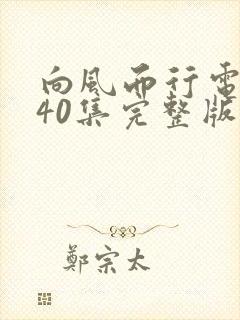 向风而行电
40集完整版
鄭宗太